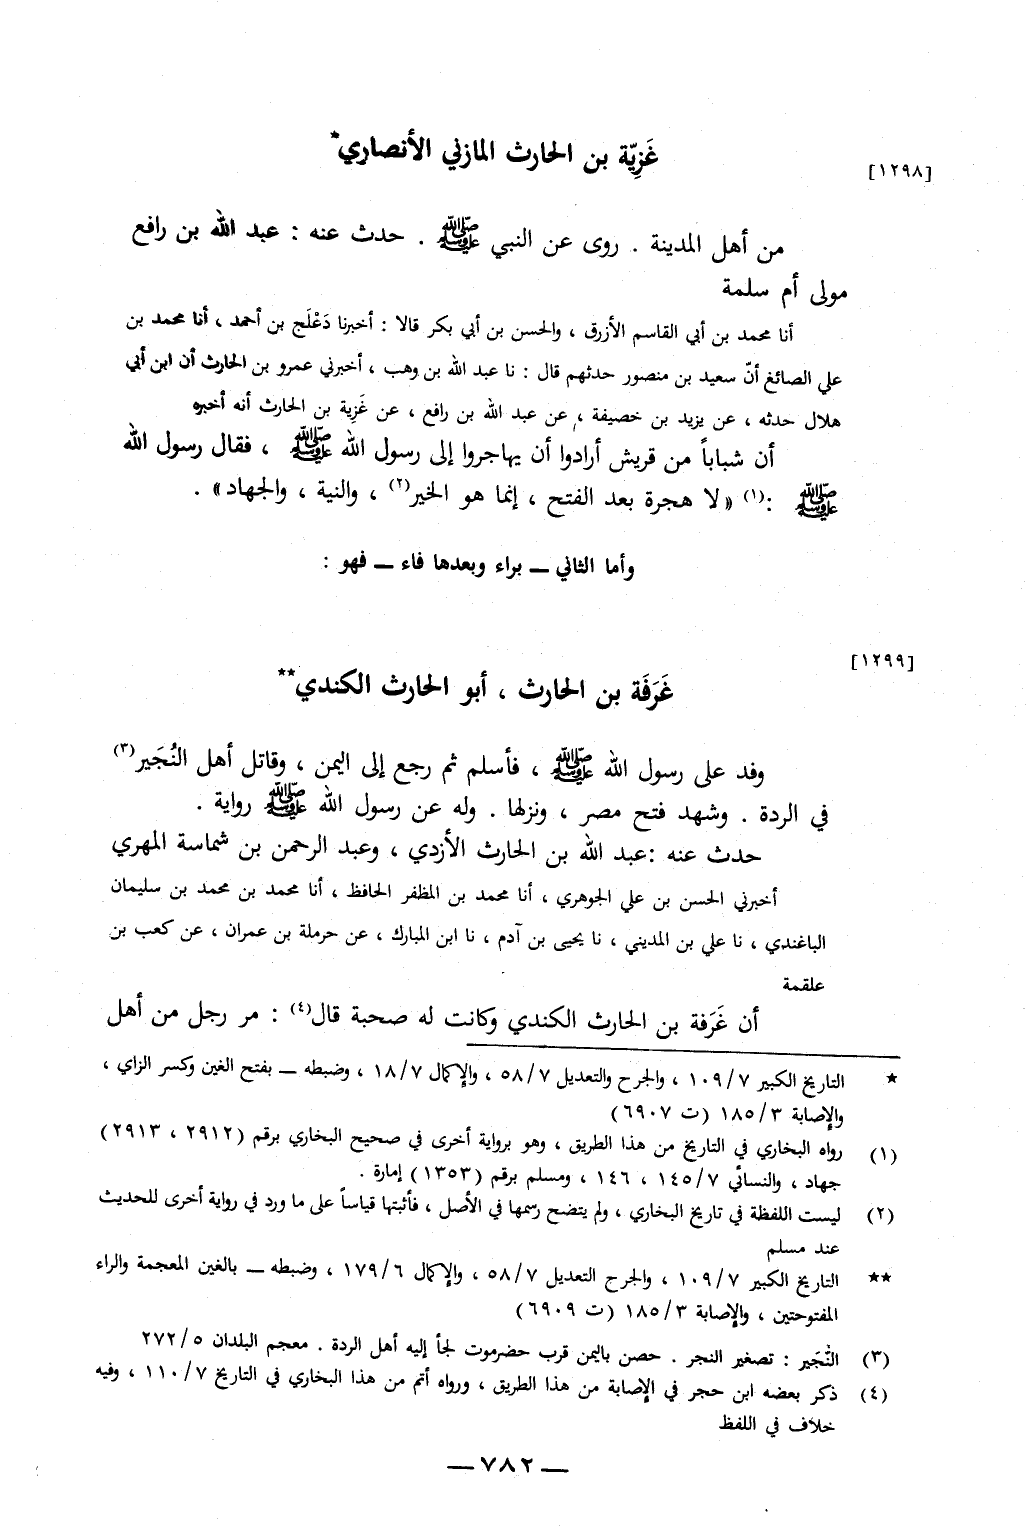 [١٢٩٨]
غَزِيّة بن الحارث المازني الأنصاري*
من أهل المدينة . روى عن النبي ﷺ . حدث عنه : عبد الله بن رافع
مولى أم سلمة
أنا محمد بن أبي القاسم الأزرق ، والحسن بن أبي بكر قالا : أخبرنا دَعْلَج بن أحمد ، أنا محمد بن
علي الصائغ أنّ سعيد بن منصور حدثهم قال : نا عبد الله بن وهب ، أخبرني عمرو بن الحارث أن ابن أبي
هلال حدثه ، عن يزيد بن خصيفة ، عن عبد الله بن رافع ، عن غَزِية بن الحارث أنه أخبره
أن شباباً من قريش أرادوا أن يهاجروا إلى رسول الله ﷺ ، فقال رسول الله
ﷺ :(١) «لا هجرة بعد الفتح ، إنما هو الخير(٢) ، والنية ، والجهاد» .
وأما الثاني ــ براء وبعدها فاء ــ فهو :
[١٢٩٩]
غَرَفَة بن الحارث ، أبو الحارث الكندي**
وفد على رسول الله ﷺ ، فأسلم ثم رجع إلى اليمن ، وقاتل أهل النُجَير(٣)
في الردة . وشهد فتح مصر ، ونزلها . وله عن رسول الله ﷺ رواية .
حدث عنه :عبد الله بن الحارث الأزدي ، وعبد الرحمن بن شماسة المهري
أخبرني الحسن بن علي الجوهري ، أنا محمد بن المظفر الحافظ ، أنا محمد بن محمد بن سليمان
الباغندي ، نا علي بن المديني ، نا يحيى بن آدم ، نا ابن المبارك ، عن حرملة بن عمران ، عن كعب بن
علقمة
أن غَرَفة بن الحارث الكندي وكانت له صحبة قال(٤) : مر رجل من أهل
* التاريخ الكبير ١٠٩/٧ ، والجرح والتعديل ٥٨/٧ ، والإكمال ١٨/٧ ، وضبطه ــ بفتح الغين وكسر الزاي ،
والإصابة ١٨٥/٣ (ت ٦٩٠٧)
(١) رواه البخاري في التاريخ من هذا الطريق ، وهو برواية أخرى في صحيح البخاري برقم (٢٩١٢ ، ٢٩١٣)
جهاد ، والنسائي ١٤٥/٧ ، ١٤٦ ، ومسلم برقم (١٣٥٣) إمارة .
(٢) ليست اللفظة في تاريخ البخاري ، ولم يتضح رسمها في الأصل ، فأثبتها قياساً على ما ورد في رواية أخرى للحديث
عند مسلم
** التاريخ الكبير ١٠٩/٧ ، والجرح التعديل ٥٨/٧ ، والإكمال ١٧٩/٦ ، وضبطه ــ بالغين المعجمة والراء
المفتوحتين ، والإصابة ١٨٥/٣ (ت ٦٩٠٩)
(٣) النُّجَير : تصغير النجر . حصن باليمن قرب حضرموت لجأ إليه أهل الردة . معجم البلدان ٢٧٢/٥
(٤) ذكر بعضه ابن حجر في الإصابة من هذا الطريق ، ورواه أتم من هذا البخاري في التاريخ ١١٠/٧ ، وفيه
خلاف في اللفظ
ــ ٧٨٢ ــ